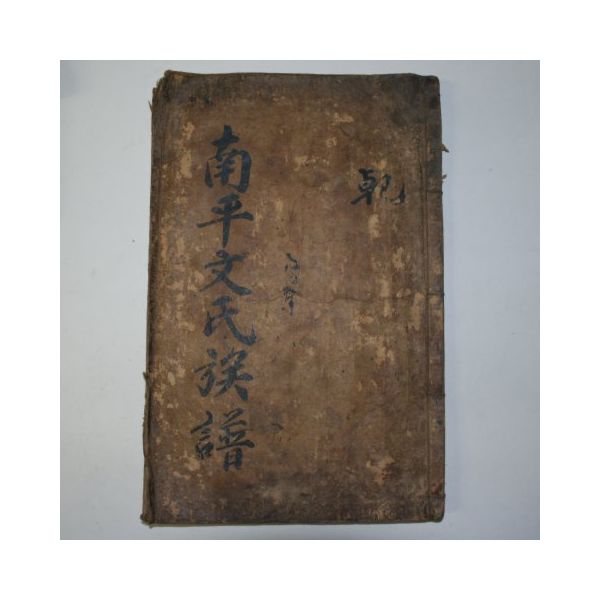 乾
南平文氏族譜